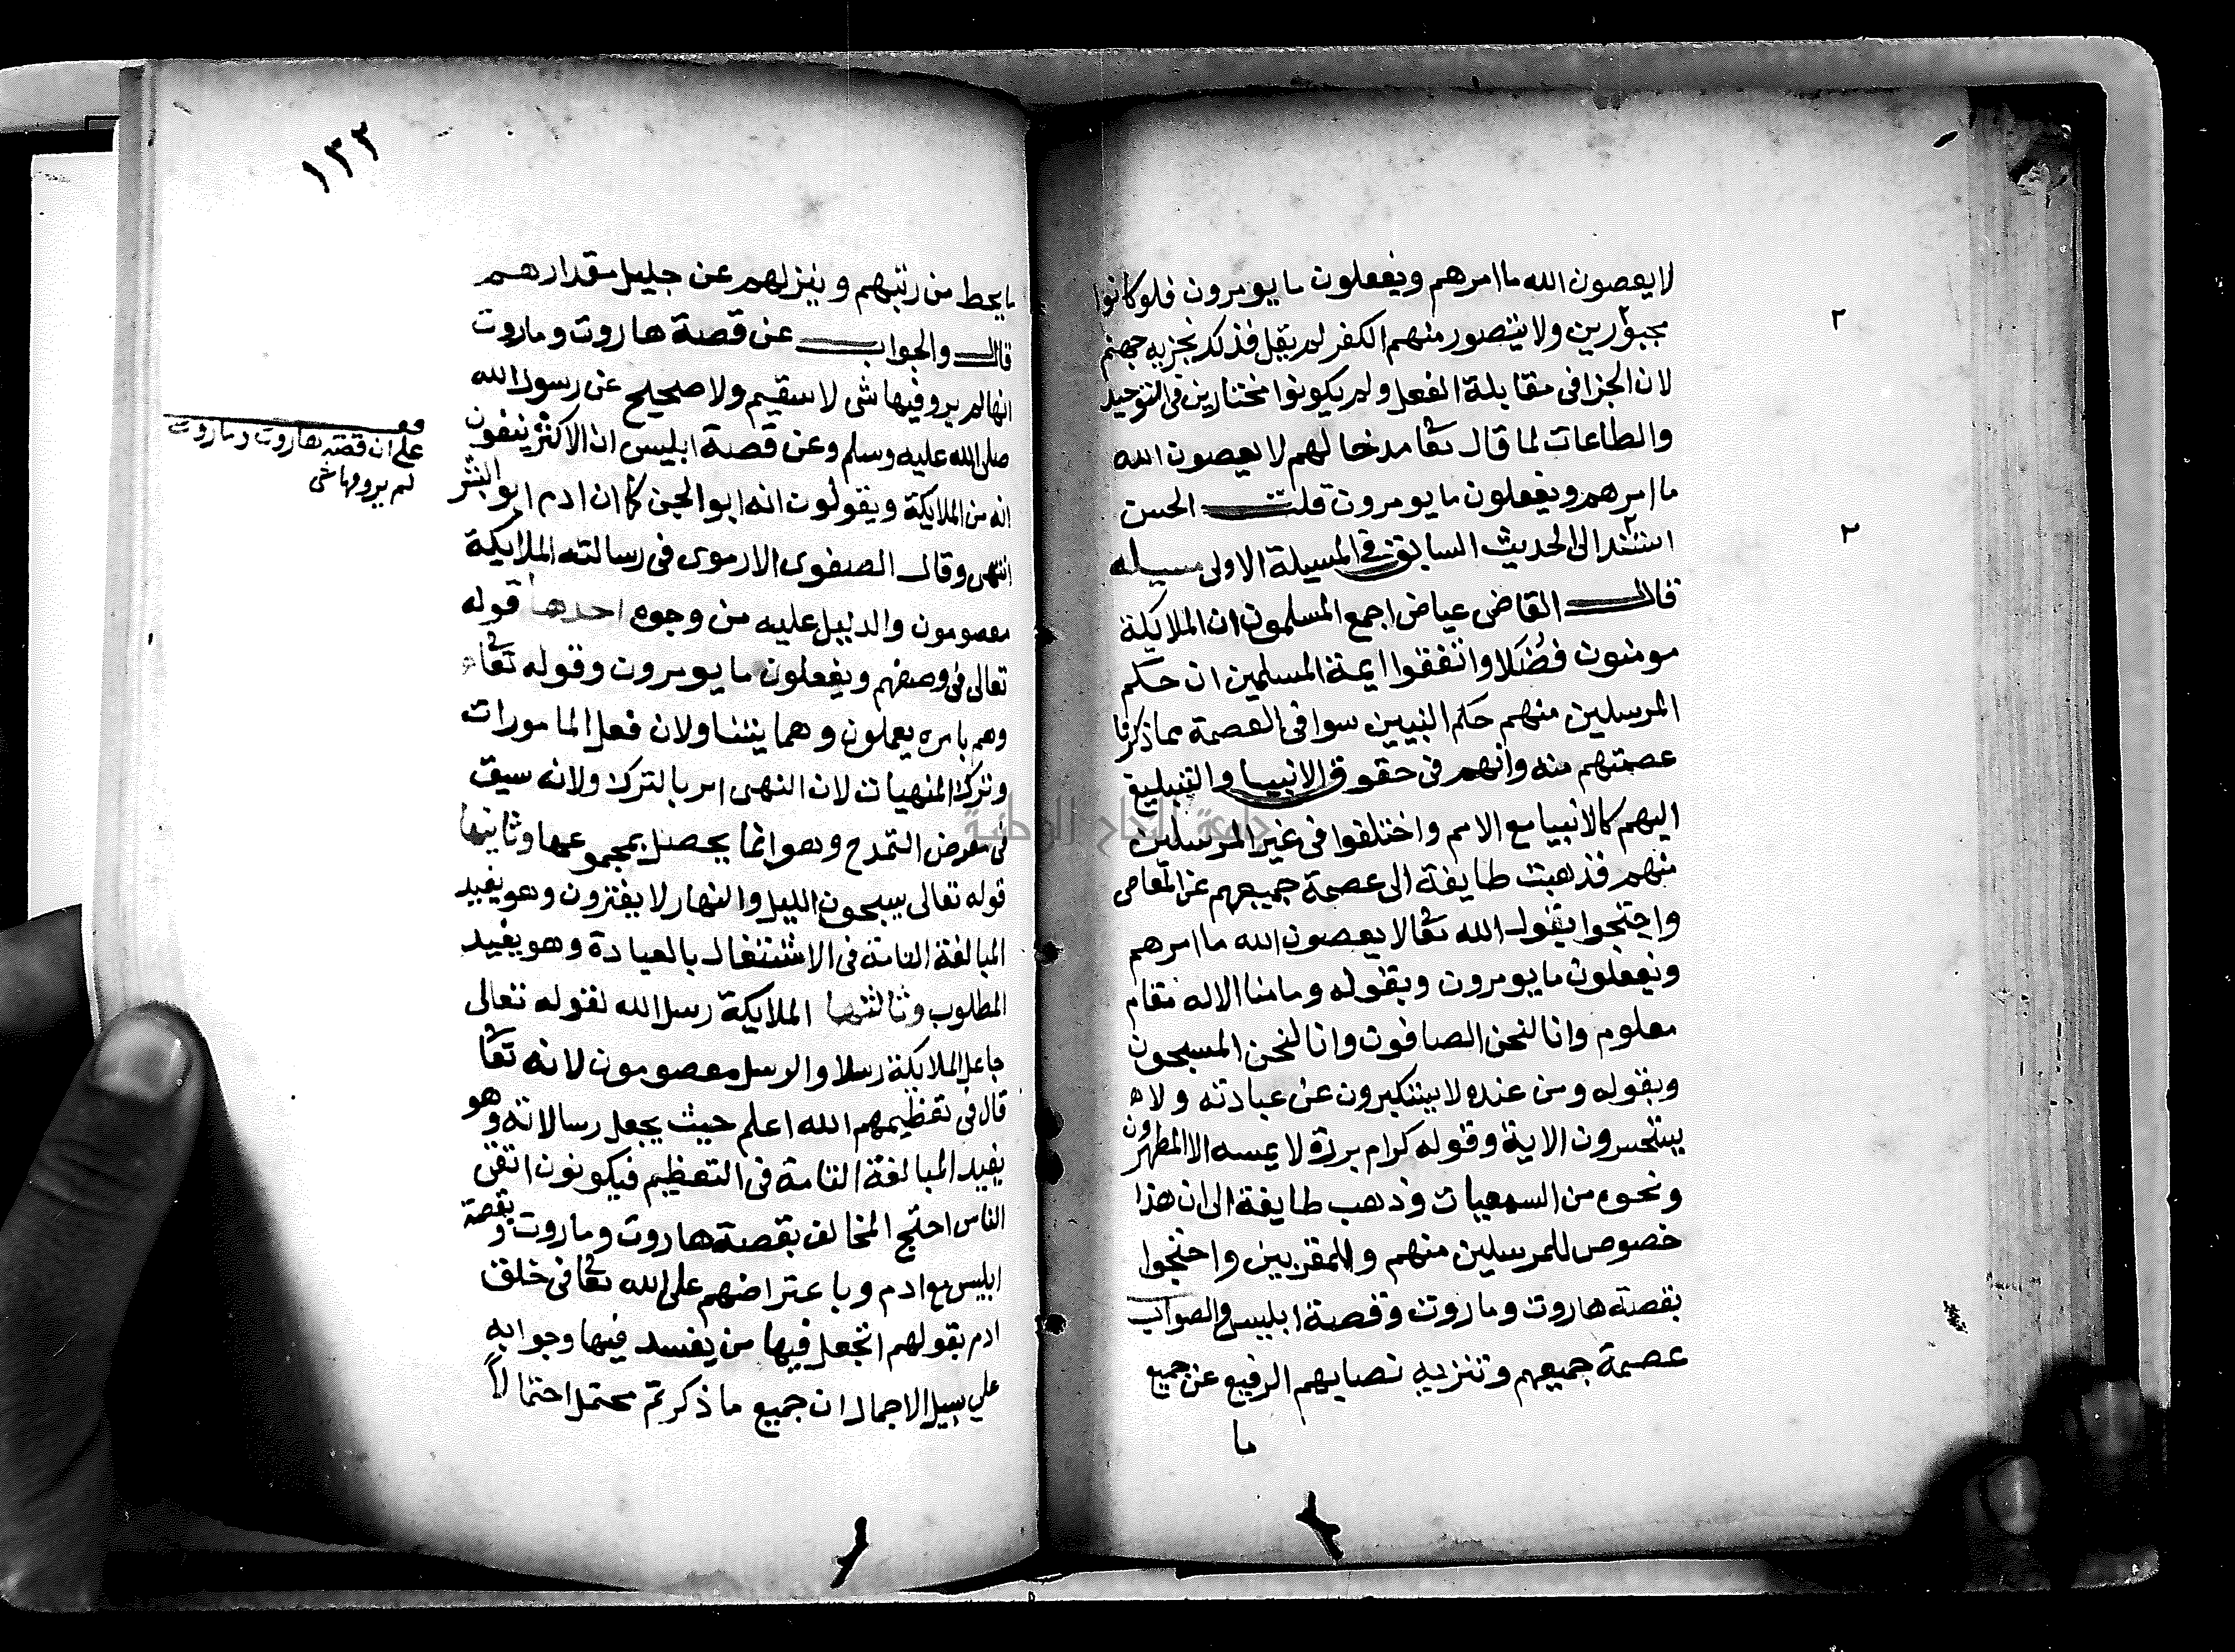 لا يعصون الله ما امرهم ويفعلون ما يومرون فلو كانوا
مجبورين ولا يتصور منهم الكفر لم يقل فذلك نجزيه جهنم
لان الجزا فى مقابلة الفعل ولم يكونوا مختارين فى التوحيد
والطاعات لما قال تعا مدحا لهم لا يعصون الله
ما امرهم ويفعلون ما يومرون قلت الحسن
استند الى الحديث السابق فى المسيلة الاولى مسيله
قال القاضى عياض اجمع المسلمون ان الملايكة
مومنون فضلا واتفقوا ايمة المسلمين ان حكم
المرسلين منهم حكم النبيين سوا فى العصمة مما ذكرنا
عصمتهم منه وانهم فى حقوق الانبيا والتبليغ
اليهم كالانبيا مع الامم واختلفوا فى غير المرسلين
منهم فذهبت طايفة الى عصمة جميعهم عن المعاصى
واحتجوا بقول الله تعا لا يعصون الله ما امرهم
ويفعلون ما يومرون وبقوله وما منا الا له مقام
معلوم وانا لنحن الصافون وانا لنحن المسبحون
وبقوله ومن عنده لا يستكبرون عن عبادته ولا
يستحسرون الاية وقوله كرام بررة لا يمسه الا المطهرون
ونحوه من السمعيات وذهب طايفة الى ان هذا
خصوص للمرسلين منهم وللمقربين واحتجوا
بقصة هاروت وماروت وقصة ابليس والصواب
عصمة جميعهم وتنزيه نصابهم الرفيع عن جميع
ما
١٣٢
ما يحط من رتبهم وينزلهم عن جليل مقدارهم
قال والجواب عن قصة هاروت وماروت
انها لم يرو فيها شى لا سقيم ولا صحيح عن رسول الله
صلى الله عليه وسلم وعن قصة ابليس ان الاكثر ينفون
انه من الملايكة ويقولون انه ابو الجن كما ان ادم ابو البشر
انتهى وقال الصفوى الارموى فى رسالته الملايكة
معصومون والدليل عليه من وجوه احدها قوله
تعالى فى وصفهم ويفعلون ما يومرون وقوله تعا
وهم بامره يعملون وهما يتناولان فعل المامورات
وترك المنهيات لان النهى امر بالترك ولانه سيق
فى معرض التمدح وهو انما يحصل بمجموعهما وثانيها
قوله تعالى يسبحون الليل والنهار لا يفترون وهو يفيد
المبالغة التامة فى الاشتغال بالعبادة وهو يفيد
المطلوب وثالثها الملايكة رسل الله لقوله تعالى
جاعل الملايكة رسلا والرسل معصومون لانه تعا
قال فى تعظيمهم الله اعلم حيث يجعل رسالاته وهو
يفيد المبالغة التامة فى التعظيم فيكونون اتقى
الناس احتج المخالف بقصة هاروت وماروت وبقصة
ابليس مع ادم وباعتراضهم على الله تعا فى خلق
ادم بقولهم اتجعل فيها من يفسد فيها وجوابه
على سبيل الاجمال ان جميع ما ذكرتم محتمل احتمالا
قف
على ان قصة هاروت وماروت
لم يرو فيها شى
جامعة النجاح الوطنية